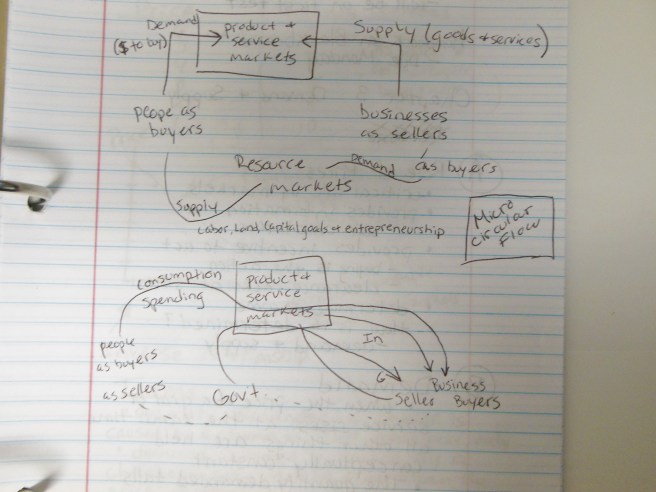 Demand
($ to buy)
product +
service
markets
Supply (goods + services)
peope as
buyers
businesses
as sellers
Resource
markets
Demand
as buyers
Supply
Labor, Land, Capital goods + entrepreneurship
Micro
Circular
Flow
Consumption
spending
product +
service
markets
people
as buyers
as sellers
Govt
In
G
Business
Seller Buyers